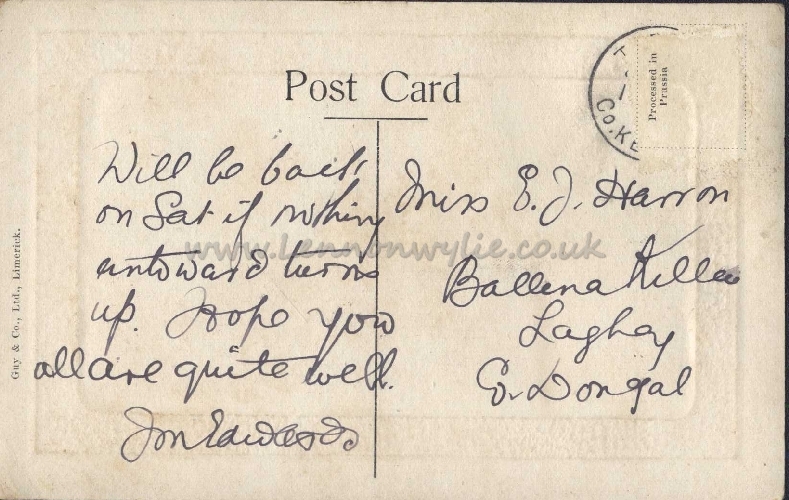 Post Card
Will be back
on Sat if nothing
untoward turns
up. Hope you
all are quite well.
Jn Edwards
Miss E. J. Harron
Ballina Killew
Laghey
Co. Dongal
Co. KE
Processed in
Prussia
Guy & Co., Ltd., Limerick.
www.Lennonwylie.co.uk